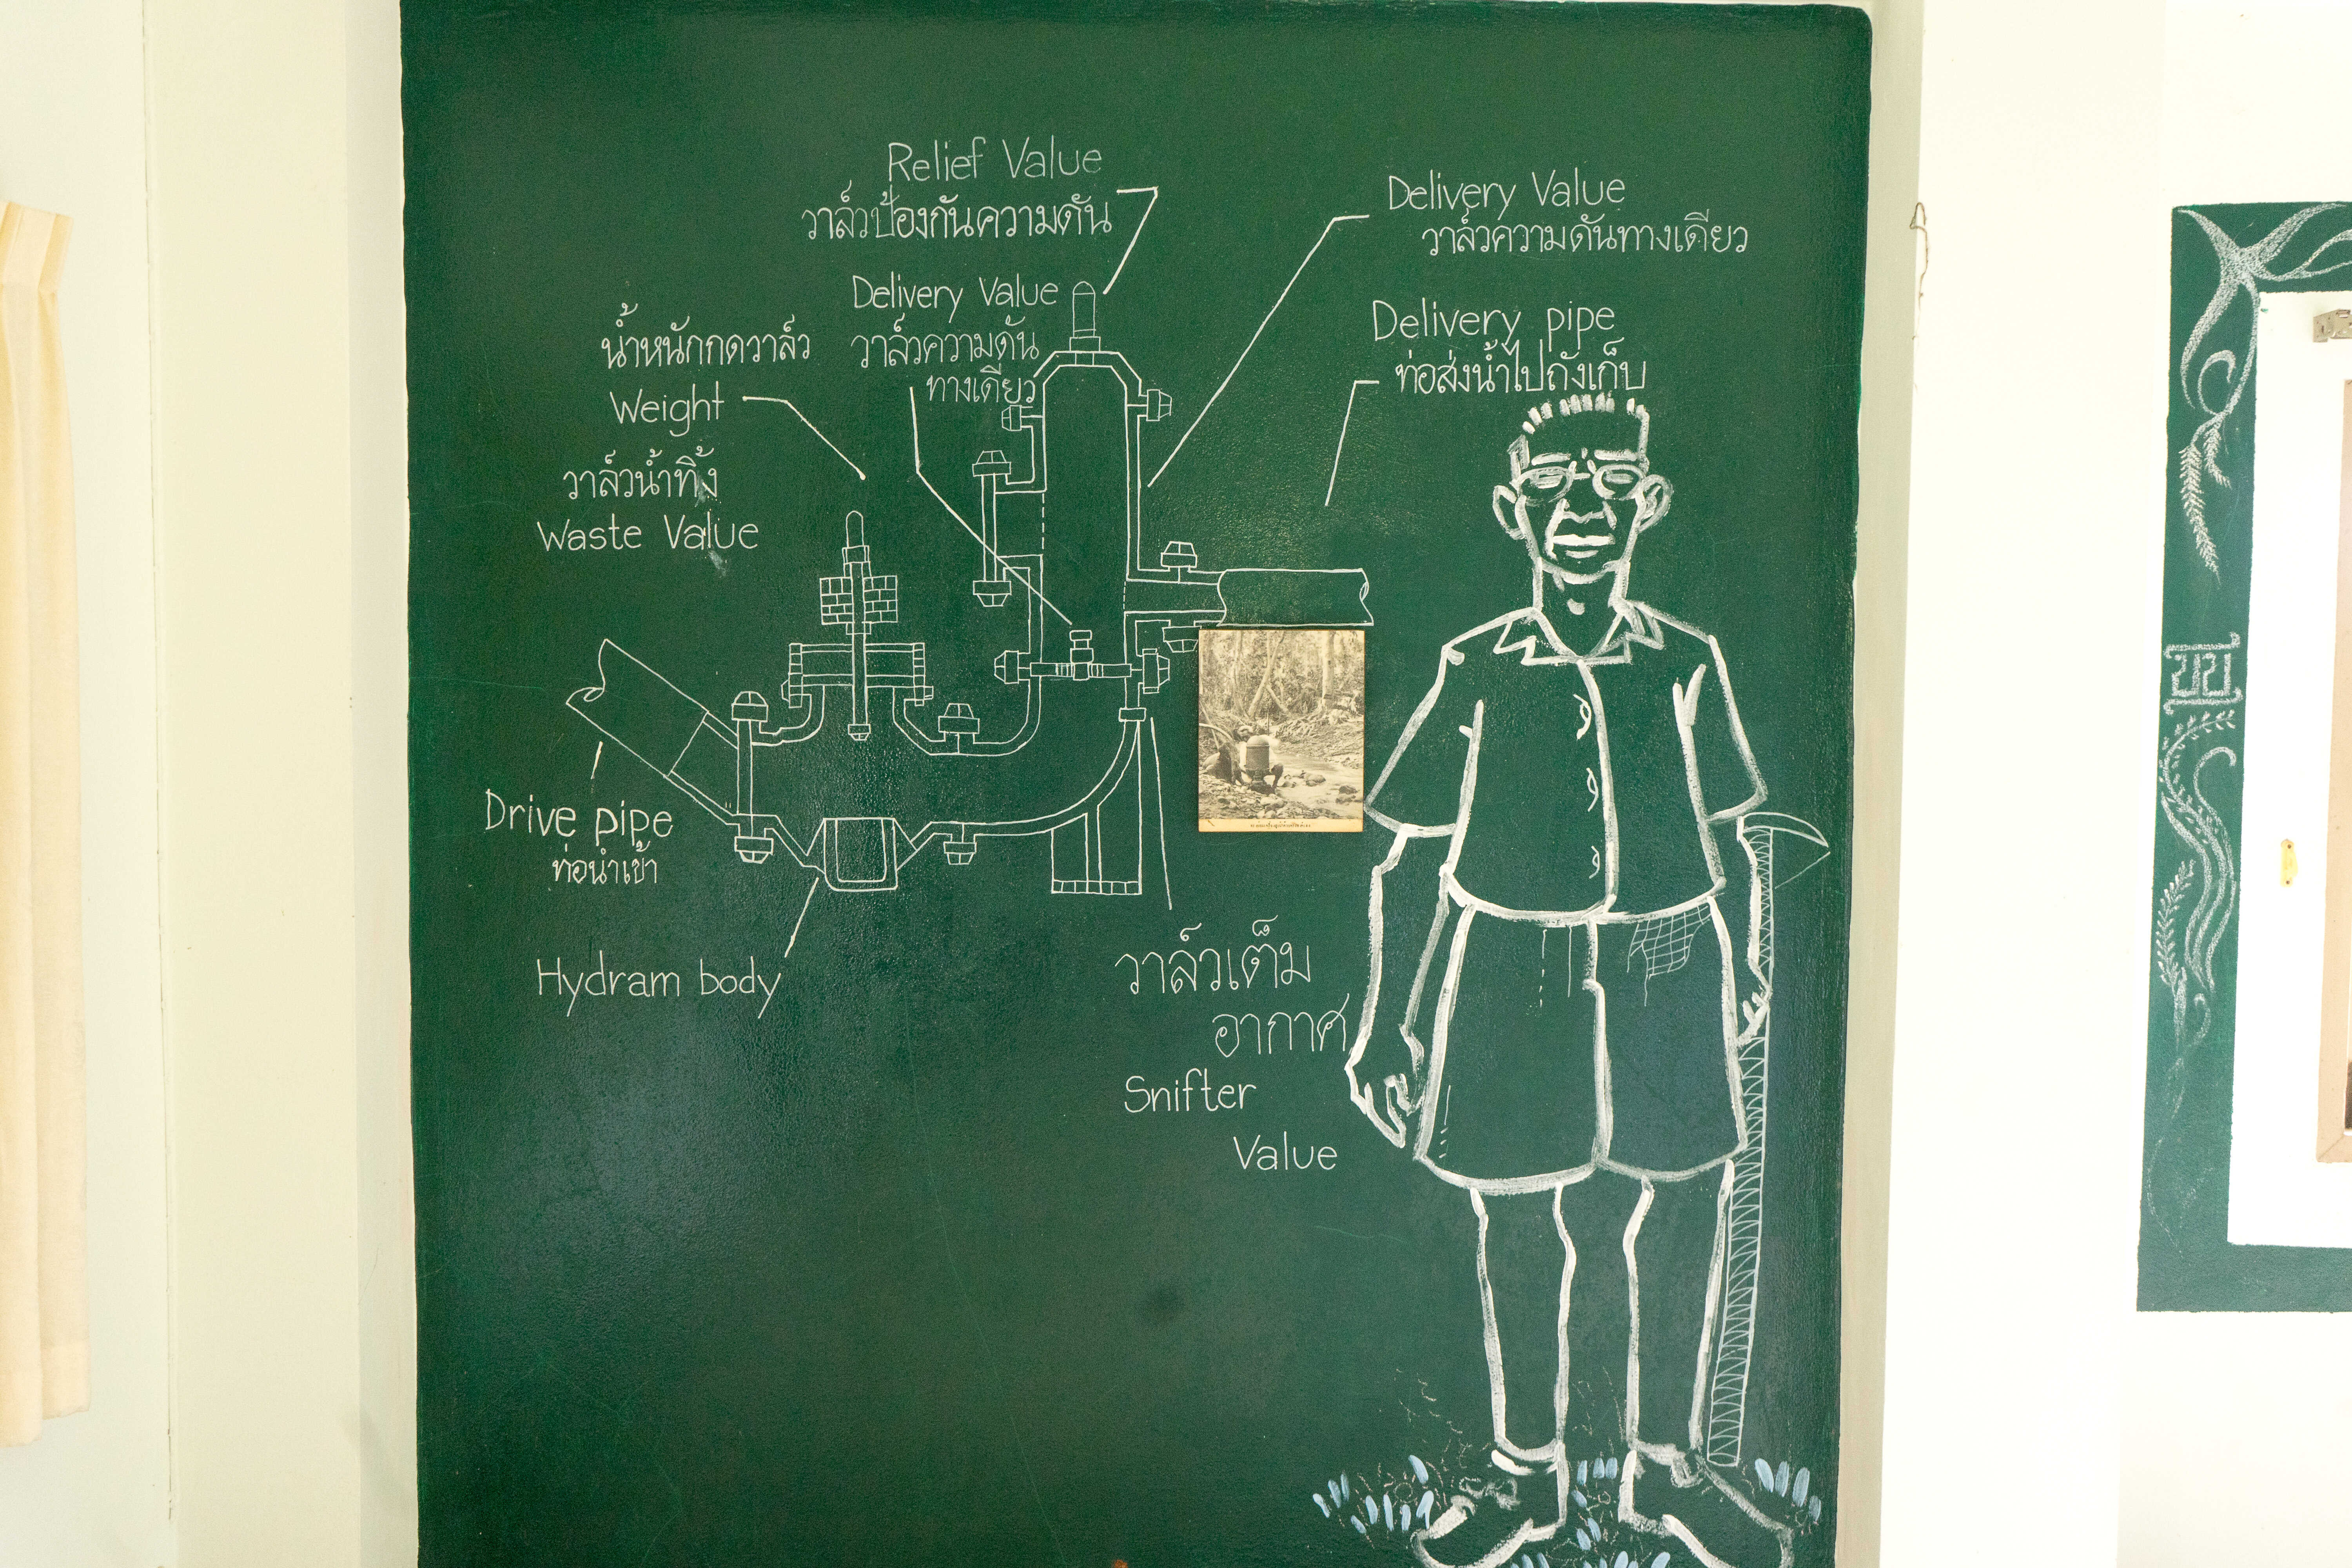 Relief Value
วาล์วป้องกันความดัน
Delivery Value
วาล์วความดันทางเดียว
Delivery Value
วาล์วความดัน
ทางเดียว
Delivery pipe
ท่อส่งน้ำไปถังเก็บ
น้ำหนักกดวาล์ว
Weight
วาล์วน้ำทิ้ง
Waste Value
Drive pipe
ท่อนำเข้า
Hydram body
วาล์วเต็ม
อากาศ
Snifter
Value